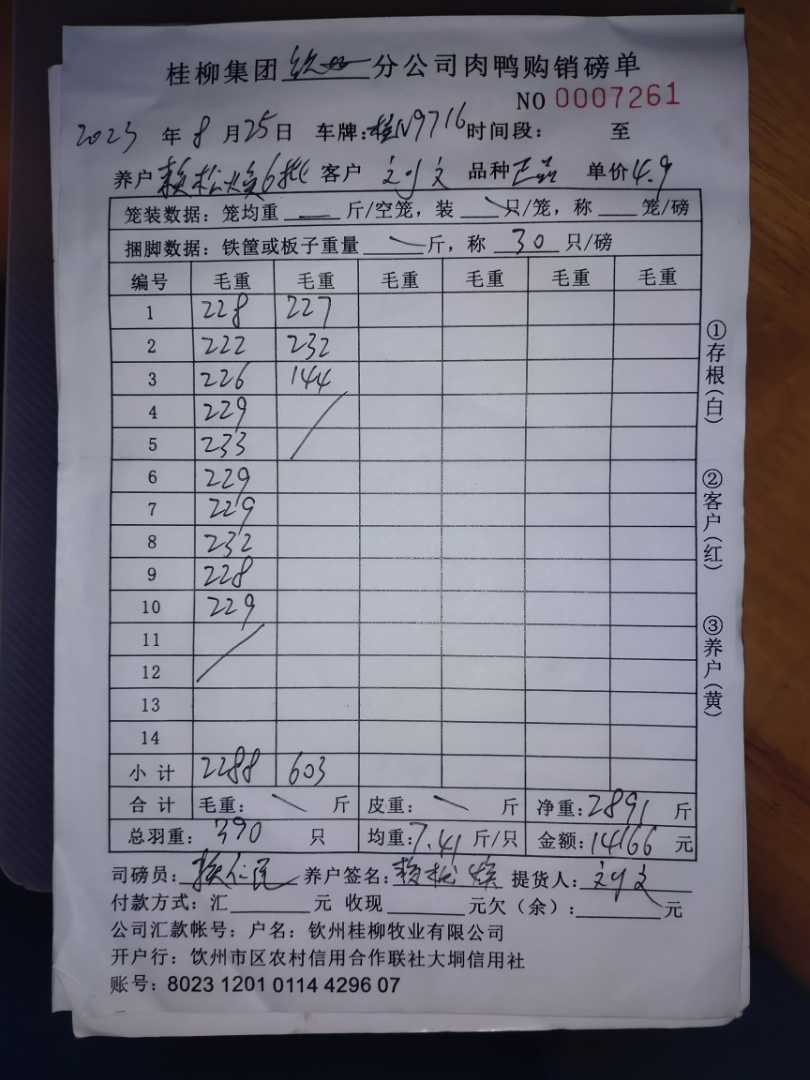 桂柳集团钦州分公司肉鸭购销磅单
NO 0007261
2023 年 8 月 25 日 车牌:桂N9716 时间段: 至
养户 赖松焕6批 客户 刘文 品种 正品 单价 4.9
笼装数据:笼均重 — 斤/空笼,装 \ 只/笼,称 — 笼/磅
捆脚数据:铁筐或板子重量 \ 斤,称 30 只/磅
编号 毛重 毛重 毛重 毛重 毛重 毛重
1 228 227
2 222 232
3 226 144
4 229
5 233
6 229
7 229
8 232
9 228
10 229
11
12
13
14
小计 2288 603
合计 毛重: \ 斤 皮重: \ 斤 净重:2891 斤
总羽重: 390 只 均重:7.41 斤/只 金额:14166 元
司磅员: 养户签名:赖松焕 提货人:刘文
付款方式:汇 元 收现 元欠(余): 元
公司汇款帐号:户名:钦州桂柳牧业有限公司
开户行:钦州市区农村信用合作联社大垌信用社
账号:8023 1201 0114 4296 07
①存根(白)
②客户(红)
③养户(黄)